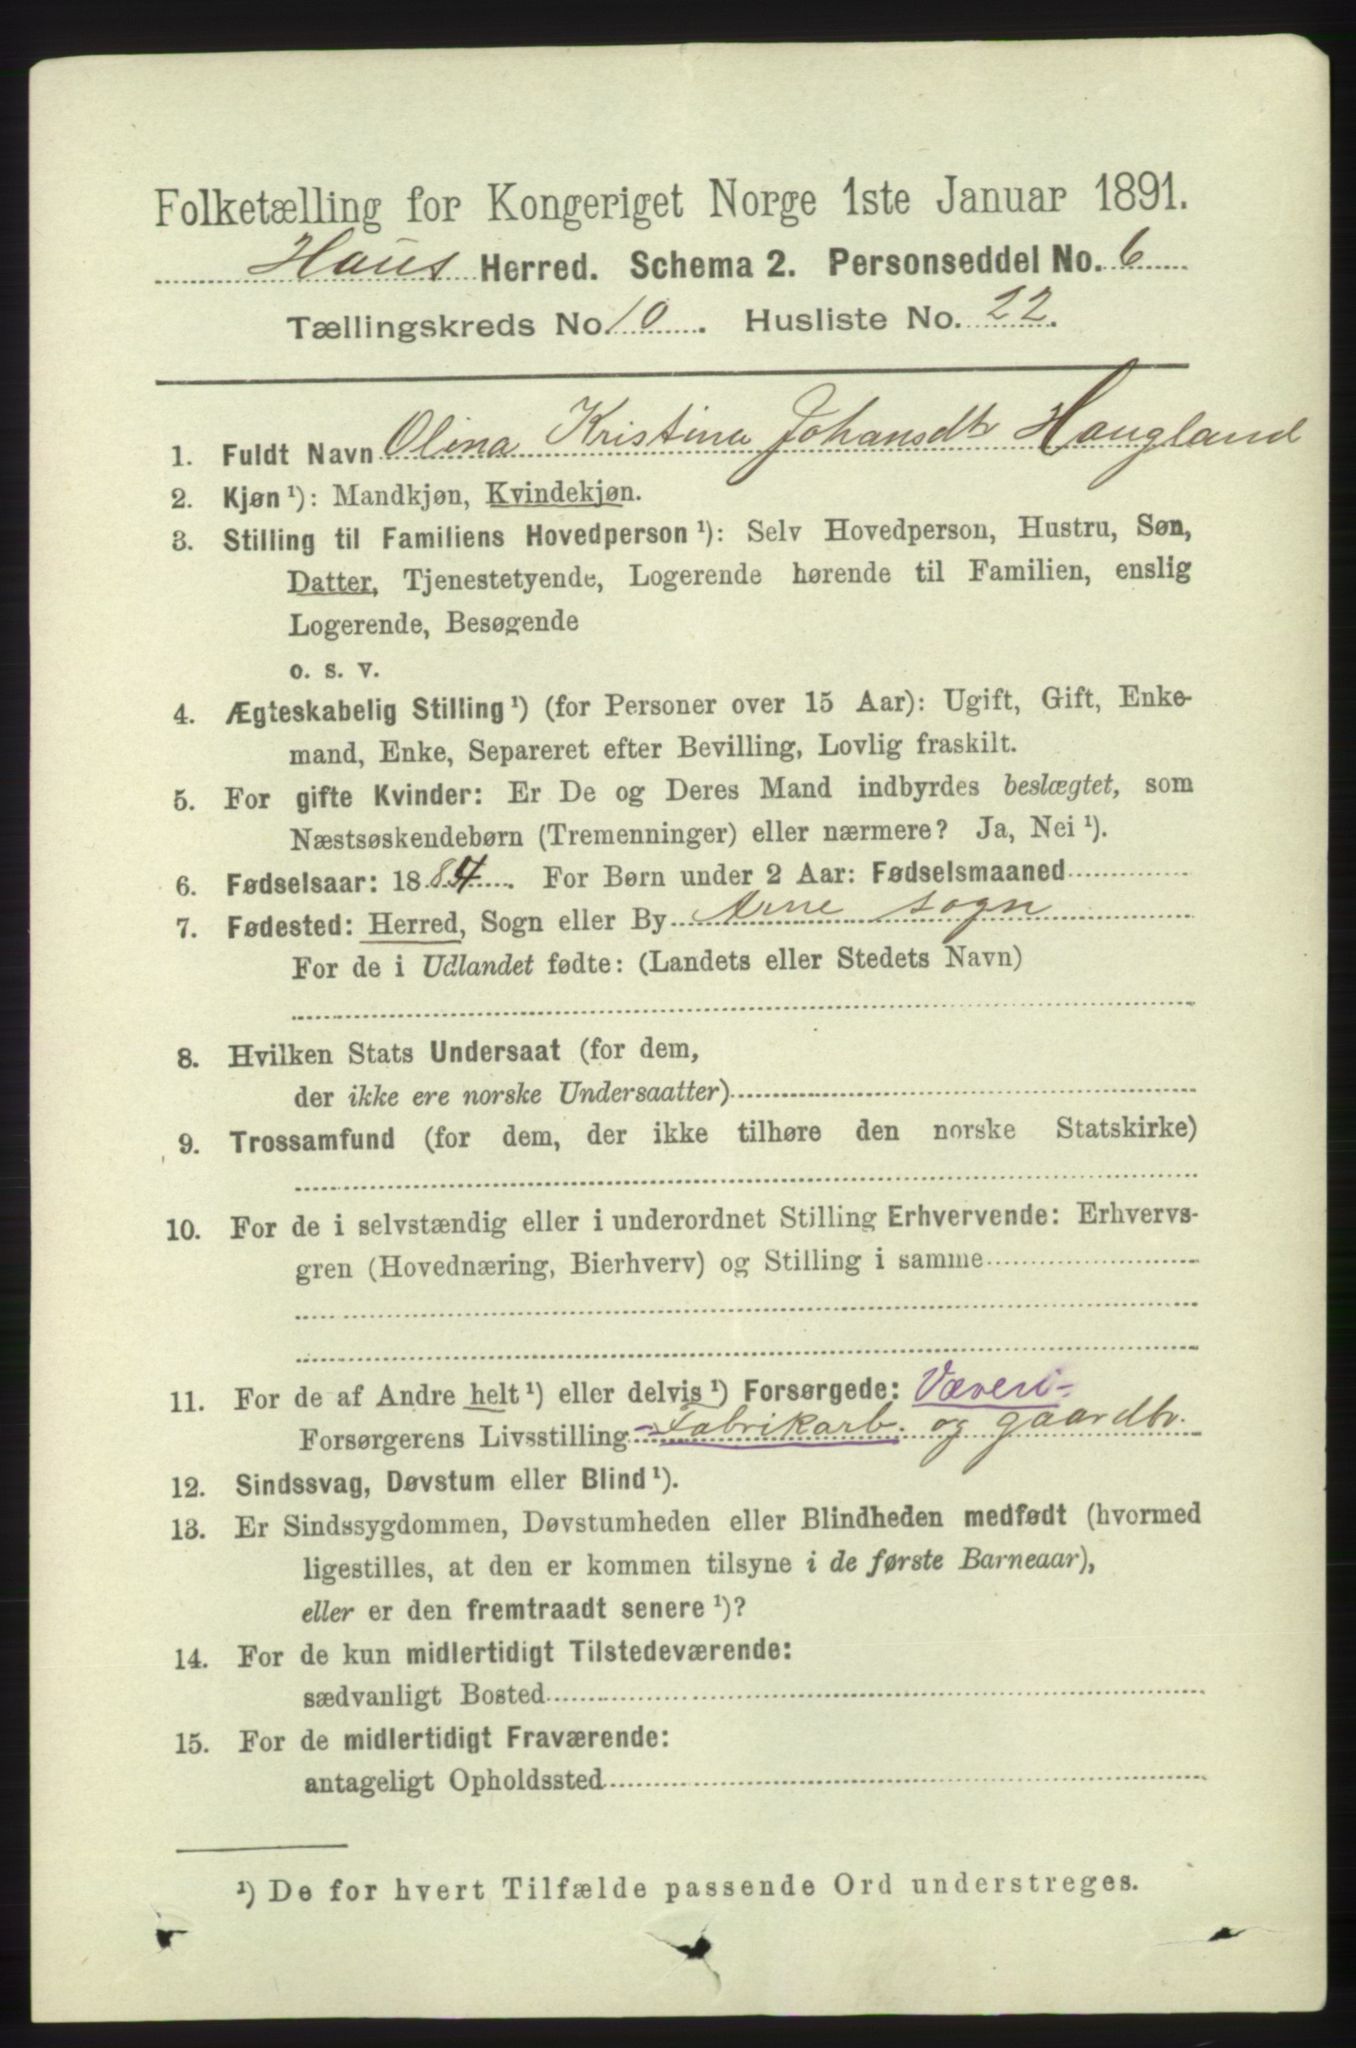 Folketælling for Kongeriget Norge 1ste Januar 1891.
Haus Herred. Schema 2. Personseddel No. 6
Tællingskreds No. 10. Husliste No. 22.
1. Fuldt Navn Olina Kristina Johansdtr Haugland
2. Kjøn ¹): Mandkjøn, Kvindekjøn.
3. Stilling til Familiens Hovedperson ¹): Selv Hovedperson, Hustru, Søn,
Datter, Tjenestetyende, Logerende hørende til Familien, enslig
Logerende, Besøgende
o. s. v.
4. Ægteskabelig Stilling ¹) (for Personer over 15 Aar): Ugift, Gift, Enke-
mand, Enke, Separeret efter Bevilling, Lovlig fraskilt.
5. For gifte Kvinder: Er De og Deres Mand indbyrdes beslægtet, som
Næstsøskendebørn (Tremenninger) eller nærmere? Ja, Nei ¹).
6. Fødselsaar: 1884. For Børn under 2 Aar: Fødselsmaaned
7. Fødested: Herred, Sogn eller By Arne sogn
For de i Udlandet fødte: (Landets eller Stedets Navn)
8. Hvilken Stats Undersaat (for dem,
der ikke ere norske Undersaatter)
9. Trossamfund (for dem, der ikke tilhøre den norske Statskirke)
10. For de i selvstændig eller i underordnet Stilling Erhvervende: Erhvervs-
gren (Hovednæring, Bierhverv) og Stilling i samme
11. For de af Andre helt ¹) eller delvis ¹) Forsørgede: Væveri-
Forsørgerens Livsstilling -Fabrikarb. og gaardbr.
12. Sindssvag, Døvstum eller Blind ¹).
13. Er Sindssygdommen, Døvstumheden eller Blindheden medfødt (hvormed
ligestilles, at den er kommen tilsyne i de første Barneaar),
eller er den fremtraadt senere ¹)?
14. For de kun midlertidigt Tilstedeværende:
sædvanligt Bosted
15. For de midlertidigt Fraværende:
antageligt Opholdssted
¹) De for hvert Tilfælde passende Ord understreges.